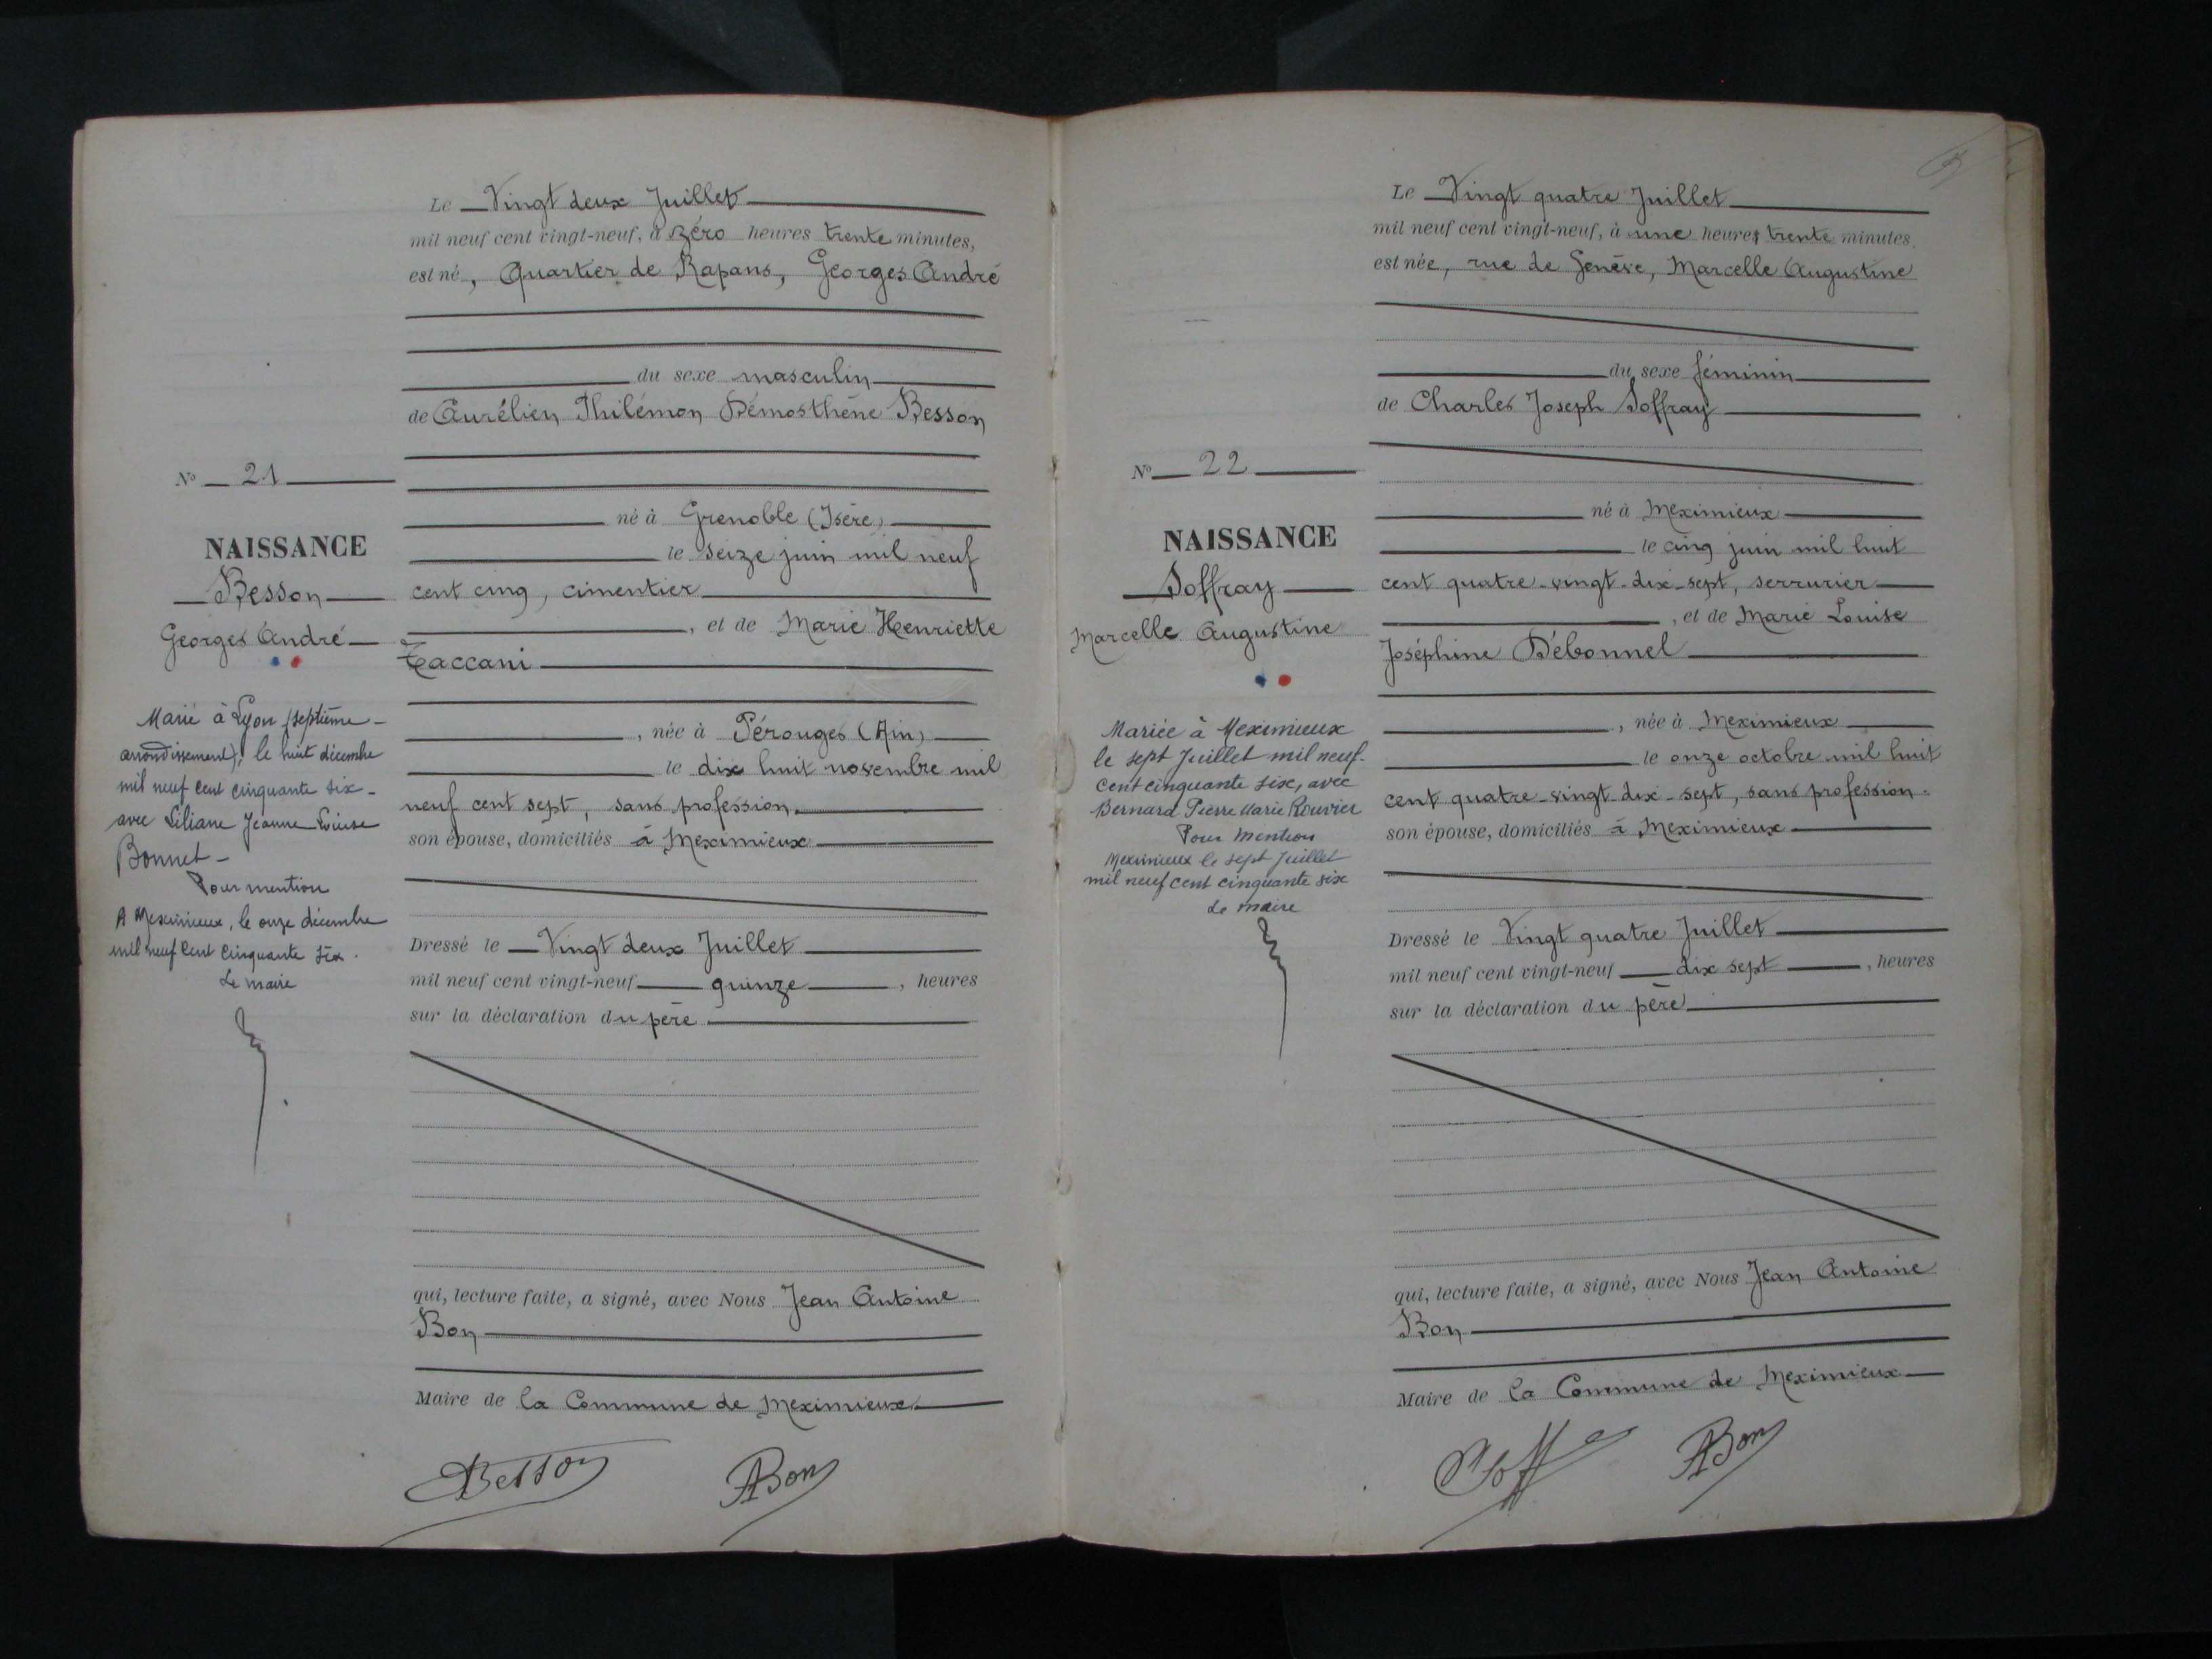 Le Vingt deux Juillet
mil neuf cent vingt-neuf, à zéro heures trente minutes,
est né, Quartier de Rapans, Georges André
du sexe masculin
de Aurélien Philémon Démosthène Besson
né à Grenoble (Isère)
le seize juin mil neuf
cent cinq, cimentier
, et de Marie Henriette
Zaccani
, née à Pérouges (Ain)
le dix huit novembre mil
neuf cent sept, sans profession.
son épouse, domiciliés à Meximieux
Dressé le Vingt deux Juillet
mil neuf cent vingt-neuf quinze, heures
sur la déclaration du père
qui, lecture faite, a signé, avec Nous Jean Antoine
Bon
Maire de la Commune de Meximieux
Besson ABon
No 21
NAISSANCE
Besson
Georges André
Marié à Lyon (septième
arrondissement), le huit décembre
mil neuf cent cinquante six
avec Liliane Jeanne Louise
Bonnet
Pour mention
A Meximieux, le onze décembre
mil neuf cent cinquante six.
Le maire
Le Vingt quatre Juillet
mil neuf cent vingt-neuf, à une heures trente minutes,
est née, rue de Genève, Marcelle Augustine
du sexe féminin
de Charles Joseph Soffray
né à Meximieux
le cinq juin mil huit
cent quatre-vingt-dix-sept, serrurier
, et de Marie Louise
Joséphine Débonnel
, née à Meximieux
le onze octobre mil huit
cent quatre-vingt-dix-sept, sans profession.
son épouse, domiciliés à Meximieux
Dressé le Vingt quatre Juillet
mil neuf cent vingt-neuf dix sept, heures
sur la déclaration du père
qui, lecture faite, a signé, avec Nous Jean Antoine
Bon
Maire de la Commune de Meximieux
ABon
No 22
NAISSANCE
Soffray
Marcelle Augustine
Mariée à Meximieux
le sept Juillet mil neuf
cent cinquante six, avec
Bernard Pierre Marie Rouvier
Pour Mention
Meximieux le sept Juillet
mil neuf cent cinquante six
Le maire